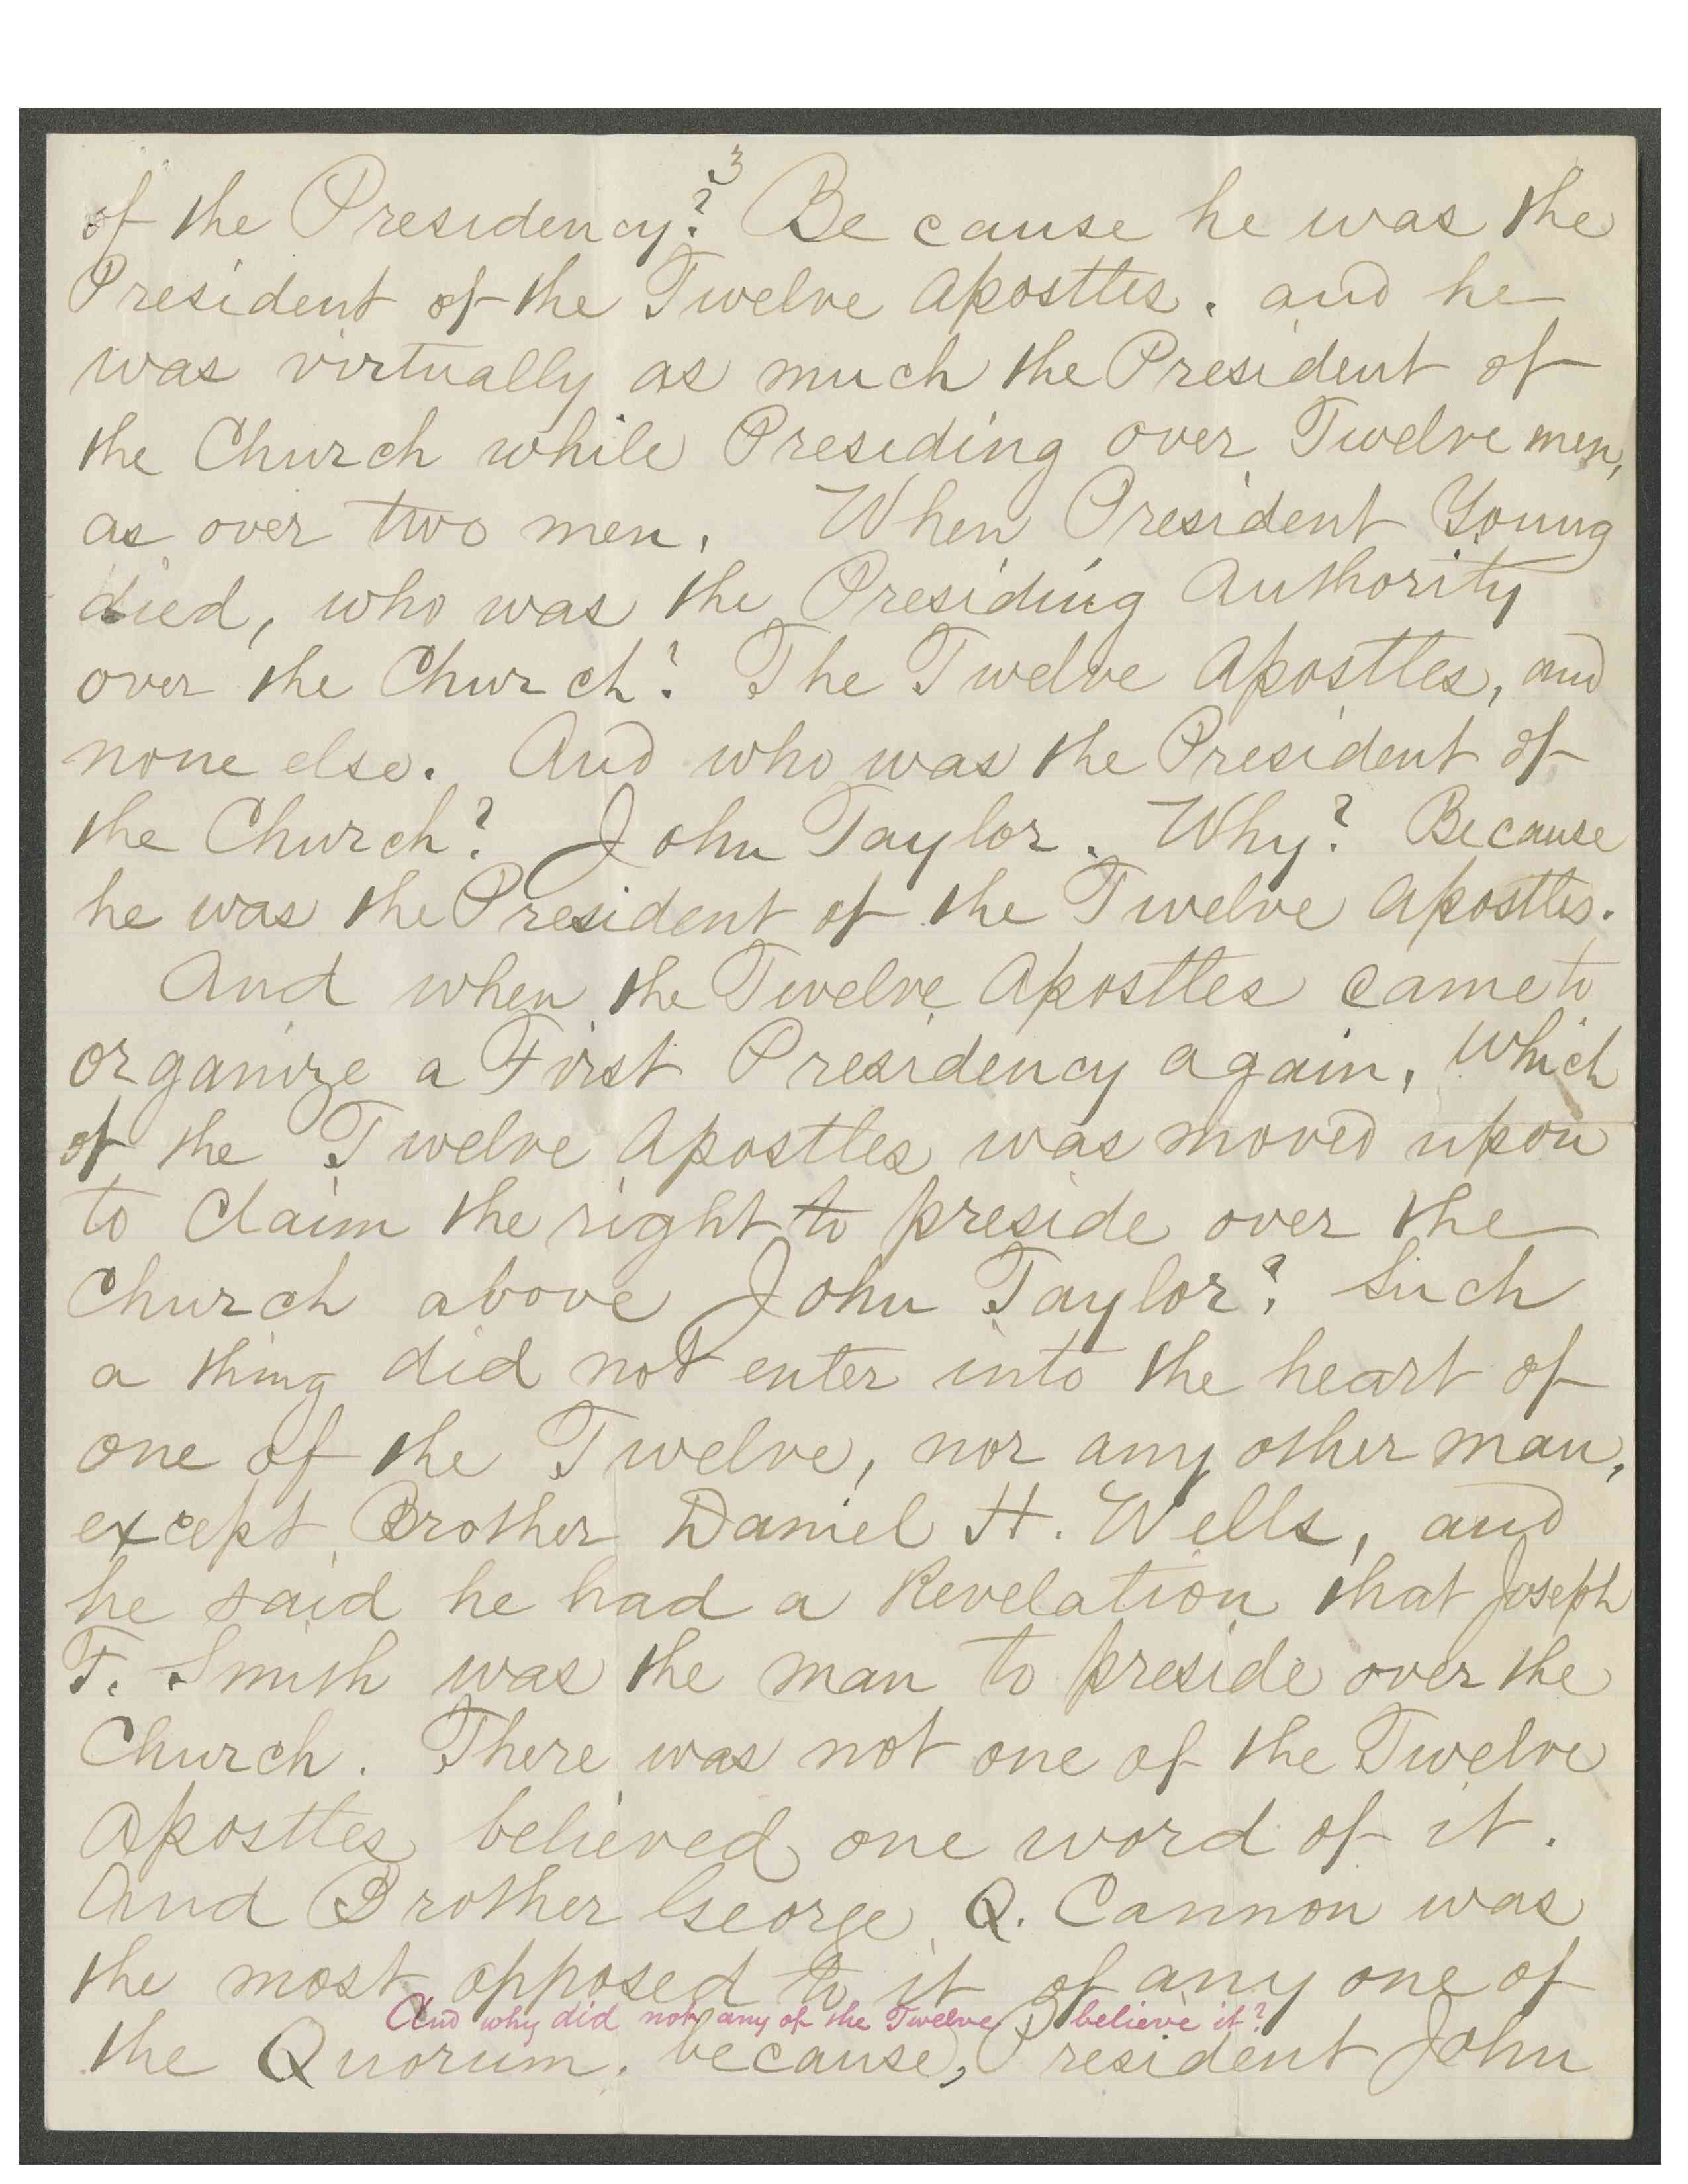 3
of the Presidency? Be cause he was the
President of the Twelve Apostles. and he
was virtually as much the President of
the Church while Presiding over Twelve men,
as over two men. When President Young
died, who was the Presiding Authority
over the Church? The Twelve Apostles, and
none else. And who was the President of
the Church? John Taylor. Why? Because
he was the President of the Twelve Apostles.
And when the Twelve Apostles came to
organize a First Presidency again, which
of the Twelve Apostles was moved upon
to claim the right to preside over the
Church above John Taylor? Such
a thing did not enter into the heart of
one of the Twelve, nor any other man,
except Brother Daniel H. Wells, and
he said he had a Revelation that Joseph
F. Smith was the man to preside over the
Church. There was not one of the Twelve
Apostles believed one word of it.
And Brother George Q. Cannon was
the most opposed to it of any one of
And why did not any of the Twelve believe it?
the Quorum. because, President John